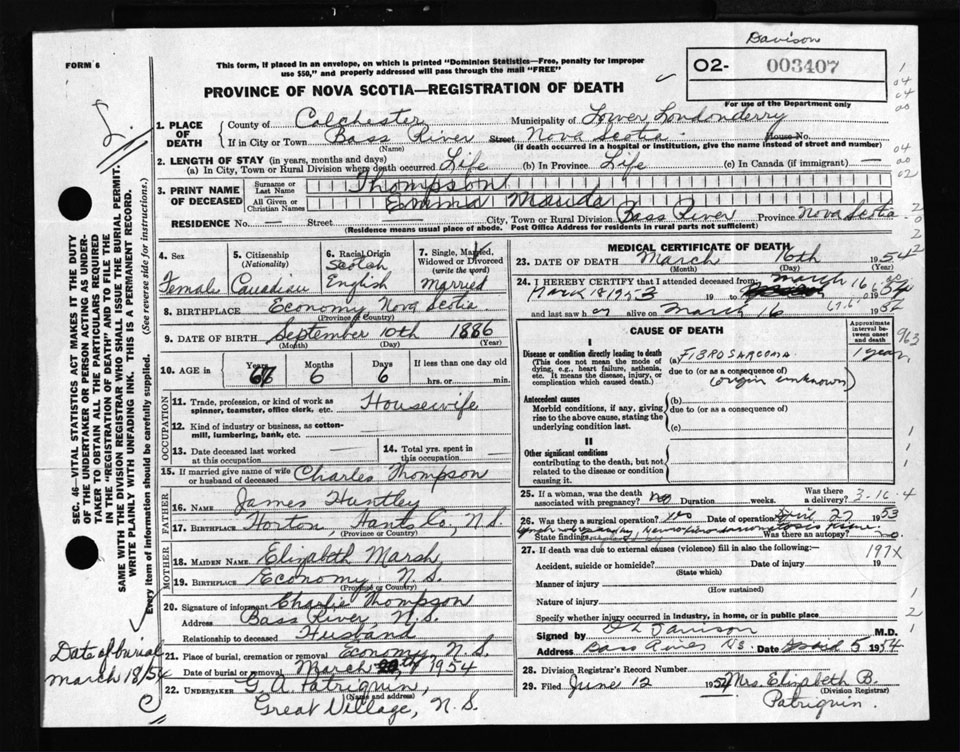 Davison
FORM 6
This form, if placed in an envelope, on which is printed "Dominion Statistics—Free, penalty for improper
use $50," and properly addressed will pass through the mail "FREE"
02- 003407
PROVINCE OF NOVA SCOTIA—REGISTRATION OF DEATH
For use of the Department only
1. PLACE OF DEATH
County of Colchester Municipality of Lower Londonderry
If in City or Town Bass River Street Nova Scotia House No.
(Name) (If death occurred in a hospital or institution, give the name instead of street and number)
2. LENGTH OF STAY (in years, months and days)
(a) In City, Town or Rural Division where death occurred Life (b) In Province Life (c) In Canada (if immigrant) —
3. PRINT NAME OF DECEASED
Surname or Last Name Thompson
All Given or Christian Names Emma Mauda
RESIDENCE No. Street City, Town or Rural Division Bass River Province Nova Scotia
(Residence means usual place of abode. Post Office Address for residents in rural parts not sufficient)
4. Sex Female
5. Citizenship (Nationality) Canadian
6. Racial Origin Scotch English
7. Single, Married, Widowed or Divorced (write the word) Married
8. BIRTHPLACE Economy Nova Scotia
(Province or Country)
9. DATE OF BIRTH September 10th 1886
(Month) (Day) (Year)
10. AGE in Years 67 Months 6 Days 6 If less than one day old
hrs. or min.
OCCUPATION
11. Trade, profession, or kind of work as spinner, teamster, office clerk, etc. Housewife
12. Kind of industry or business, as cotton-mill, lumbering, bank, etc.
13. Date deceased last worked at this occupation —
14. Total yrs. spent in this occupation —
15. If married give name of wife or husband of deceased Charles Thompson
FATHER
16. Name James Huntley
17. Birthplace Horton Hants Co, N.S.
(Province or Country)
MOTHER
18. MAIDEN NAME Elizabeth Marsh
19. BIRTHPLACE Economy N.S.
(Province or Country)
20. Signature of informant Charlie Thompson
Address Bass River, N.S.
Relationship to deceased Husband
21. Place of burial, cremation or removal Economy, N.S.
Date of burial or removal March 1954
22. UNDERTAKER G. A. Patriquin,
(Name and address)
Great Village, N.S.
MEDICAL CERTIFICATE OF DEATH
23. DATE OF DEATH March 16th 1954
(Month) (Day) (Year)
24. I HEREBY CERTIFY that I attended deceased from
March 18 1953 19 to March 16 1954
and last saw her alive on March 16 1954
CAUSE OF DEATH
Approximate interval between onset and death
I
Disease or condition directly leading to death
(This does not mean the mode of dying, e.g., heart failure, asthenia, etc. It means the disease, injury, or complication which caused death.)
(a) FIBROSARCOMA 1 year
due to (or as a consequence of)
(origin unknown)
Antecedent causes
Morbid conditions, if any, giving rise to the above cause, stating the underlying condition last.
(b)
due to (or as a consequence of)
(c)
II
Other significant conditions
contributing to the death, but not related to the disease or condition causing it.
25. If a woman, was the death associated with pregnancy? no Duration weeks. Was there a delivery? 3-16-4
26. Was there a surgical operation? Yes Date of operation April 27 1953
State findings Was there an autopsy? no.
27. If death was due to external causes (violence) fill in also the following:— 197X
Accident, suicide or homicide? Date of injury 19
(State which)
Manner of injury
(How sustained)
Nature of injury
Specify whether injury occurred in industry, in home, or in public place
Signed by Davison M.D.
Address Bass River NS. Date April 5 1954
28. Division Registrar's Record Number
29. Filed June 12 1954 Mrs. Elizabeth B.
(Division Registrar)
Patriquin.
SEC. 46—VITAL STATISTICS ACT MAKES IT THE DUTY
OF THE UNDERTAKER OR PERSON ACTING AS UNDER-
TAKER TO OBTAIN ALL THE PARTICULARS REQUIRED
IN THE "REGISTRATION OF DEATH" AND TO FILE THE
SAME WITH THE DIVISION REGISTRAR WHO SHALL ISSUE THE BURIAL PERMIT.
WRITE PLAINLY WITH UNFADING INK. THIS IS A PERMANENT RECORD.
Every item of information should be carefully supplied. (See reverse side for instructions.)
Date of burial
March 18/54
963